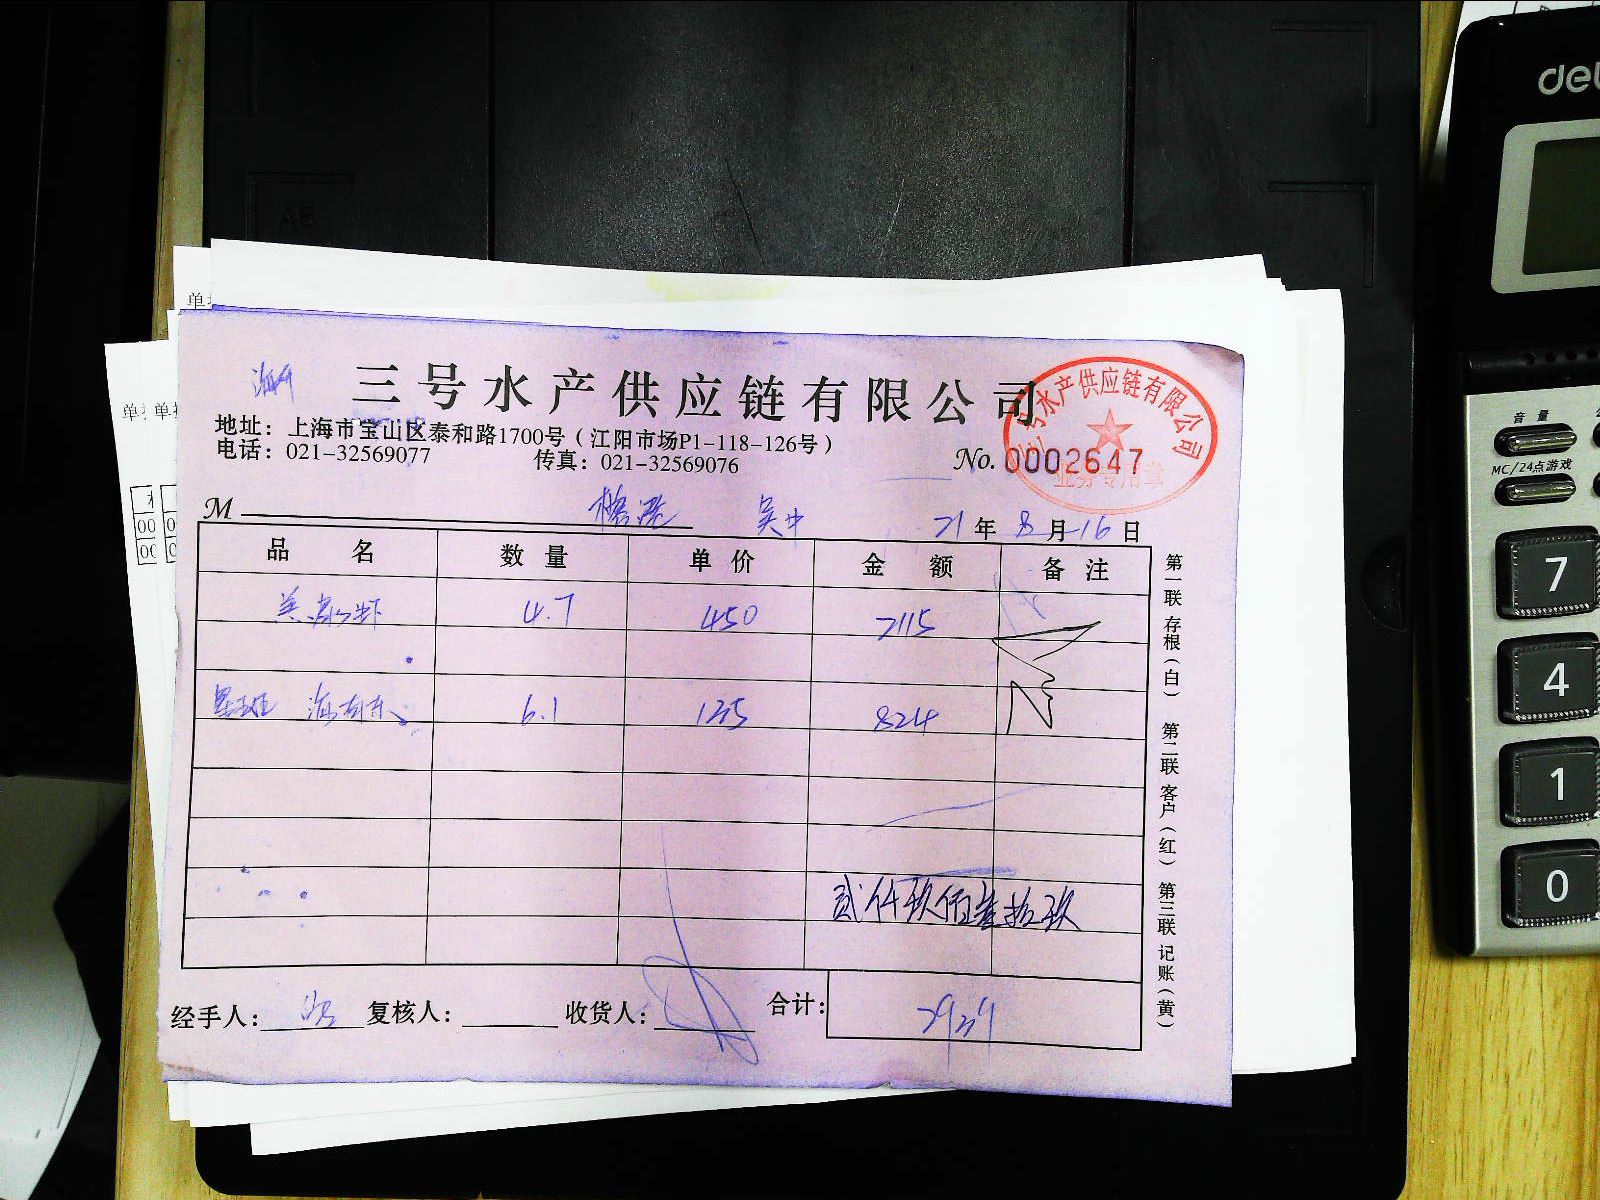 三号水产供应链有限公司
地址：上海市宝山区泰和路1700号（江阳市场P1-118-126号）
电话：021-32569077 传真：021-32569076
No. 0002647
三号水产供应链有限公司
业务专用章
M 吴中 21年8月16日
品名 数量 单价 金额 备注
4.7 450 2115
6.1 135 824
贰仟玖佰叁拾玖
经手人： 复核人： 收货人： 合计： 2939
第一联 存根（白） 第二联 客户（红） 第三联 记账（黄）
音量
MC/24点游戏
7
4
1
0